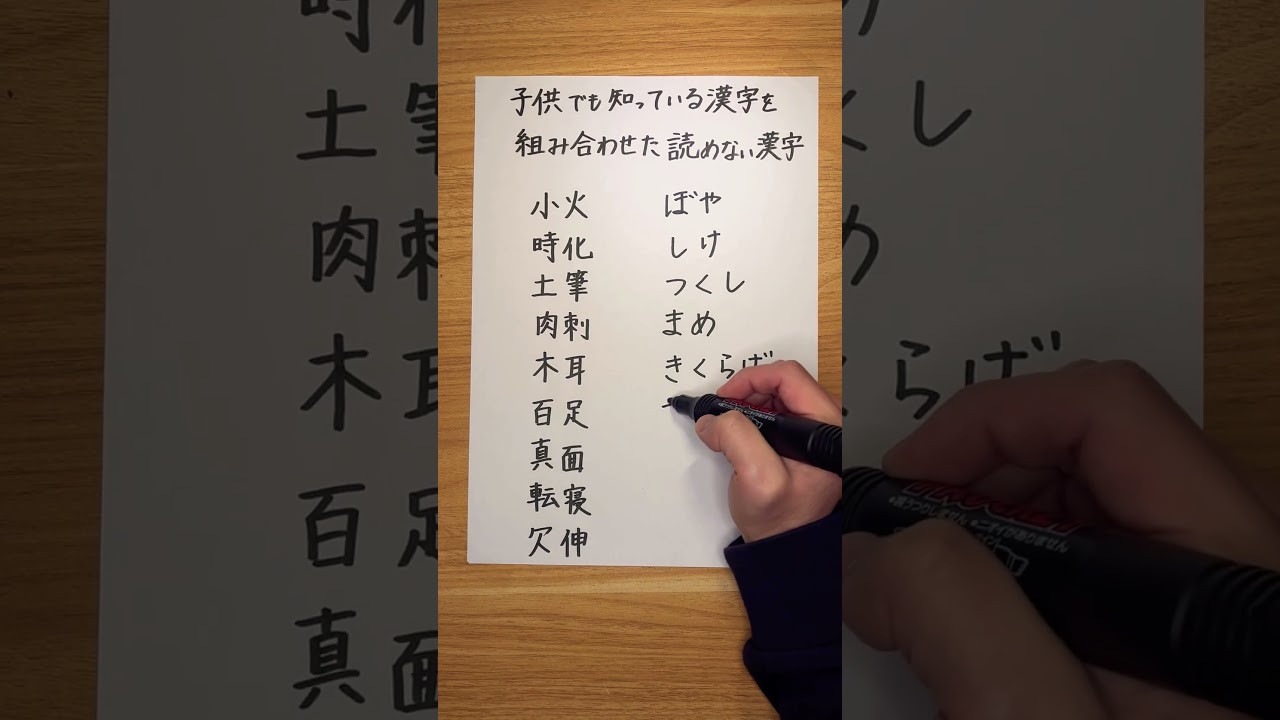 子供でも知っている漢字を
組み合わせた読めない漢字
小火 ぼや
時化 しけ
土筆 つくし
肉刺 まめ
木耳 きくらげ
百足
真面
転寝
欠伸